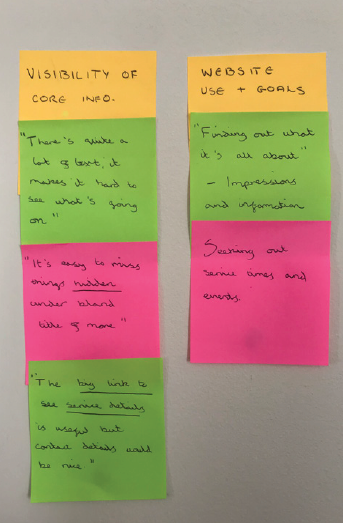 VISIBILITY OF
CORE INFO.
"There's quite a
lot of text, it
makes it hard to
see what's going
on"
"It's easy to miss
things hidden
under bland
title of more"
"The big link to
see service details
is useful but
contact details would
be nice"
WEBSITE
USE + GOALS
"Finding out what
it's all about"
- Impressions
and information
Seeking out
service times and
events.